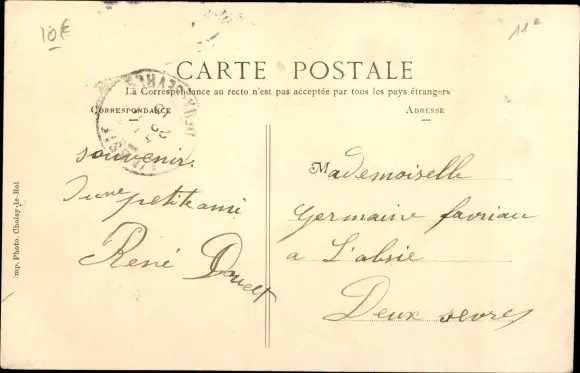 10€
11e
CARTE POSTALE
La Correspondance au recto n'est pas acceptée par tous les pays étrangers
CORRESPONDANCE
ADRESSE
souvenir.
D'une petit ami
René Douet
Mademoiselle
Germaine favriau
a L'absie
Deux sevres
Imp. Photo. Choisy-le Roi